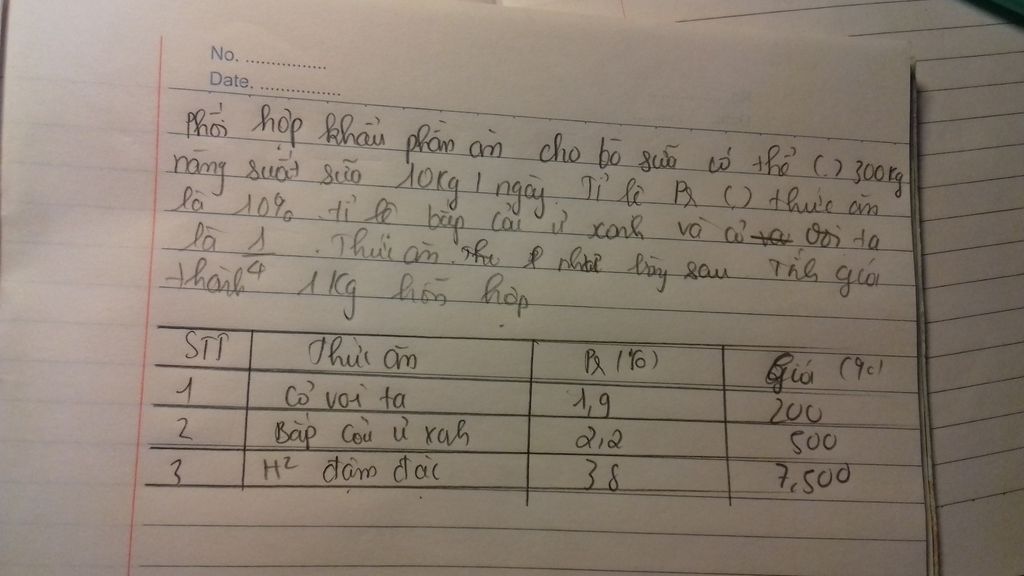 No. ................
Date. ................
phối hợp khẩu phần ăn cho bò sữa có thể () 300kg
năng suất sữa 10kg / ngày. Tỉ lệ () thức ăn
là 10% tỉ lệ bắp cải ủ xanh và cỏ voi ta
là 1/4. Thức ăn như bảng sau Tính giá
thành 1 Kg hỗn hợp
STT Thức ăn (%) Giá
1 Cỏ voi ta 1,9 200
2 Bắp cải ủ xanh 2,2 500
3 H² đậm đặc 38 7,500